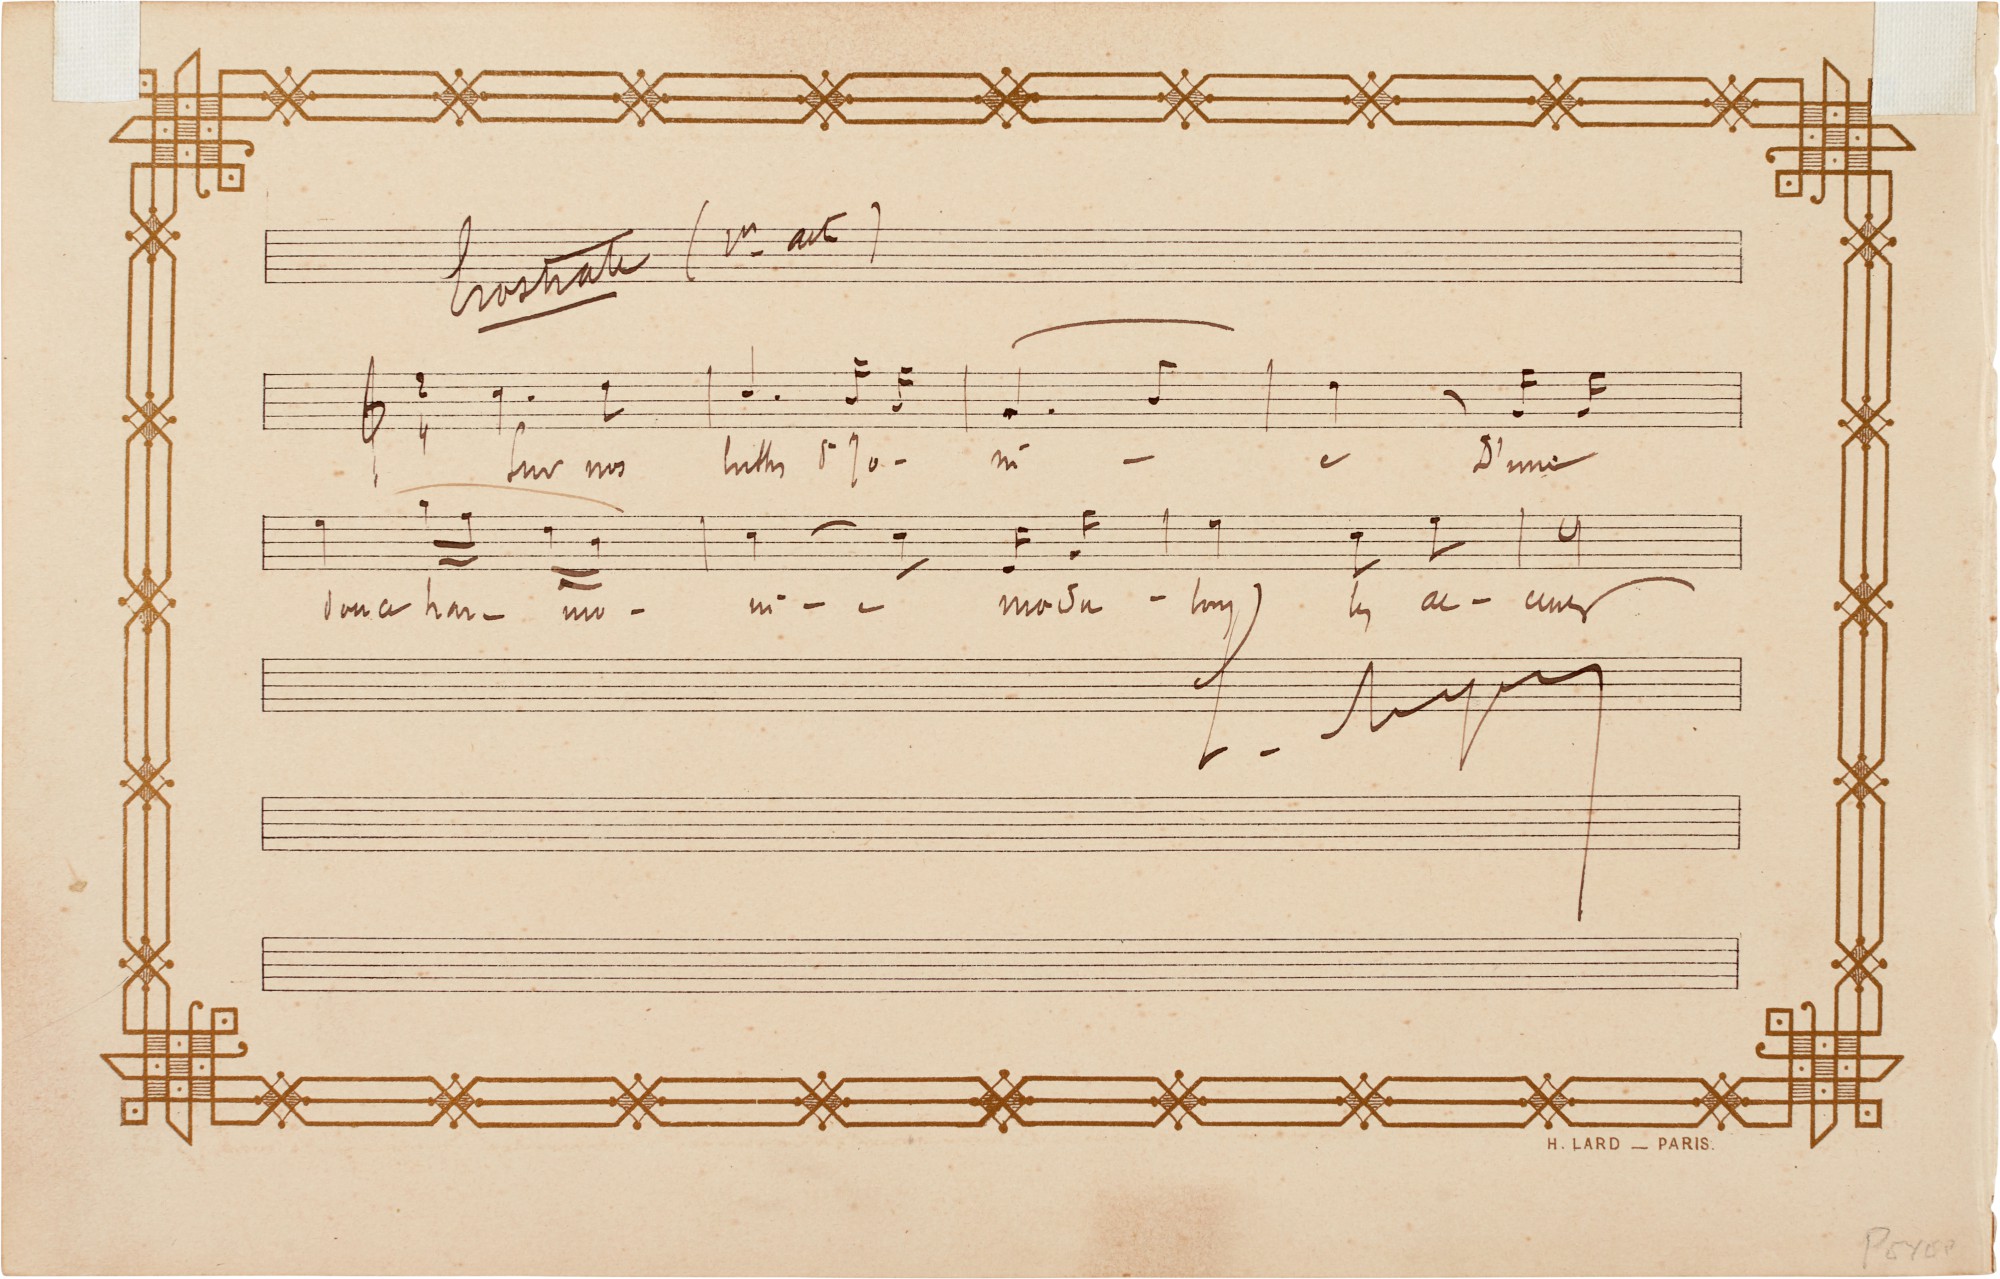 Erostrate (1er acte)
2 4
Sur nos luths d'Io - ni - e D'une
douce har - mo - ni - e modu - lons les ac - cents
E. Reyer
H. LARD — PARIS.
Reyer